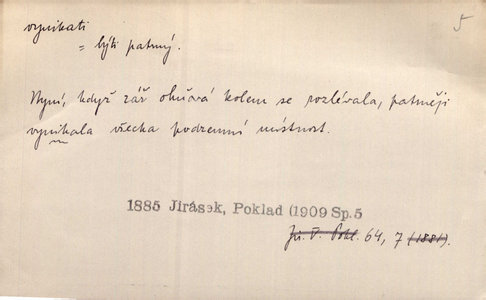 vynikati
= býti patmý.
5
Nyní, když zář ohňová kolem se rozlévala, patměji
vynikala všecka podzemní místnost.
1885 Jirásek, Poklad (1909 Sp.5
Jir. V. Pokl. 64, 7 (1881).